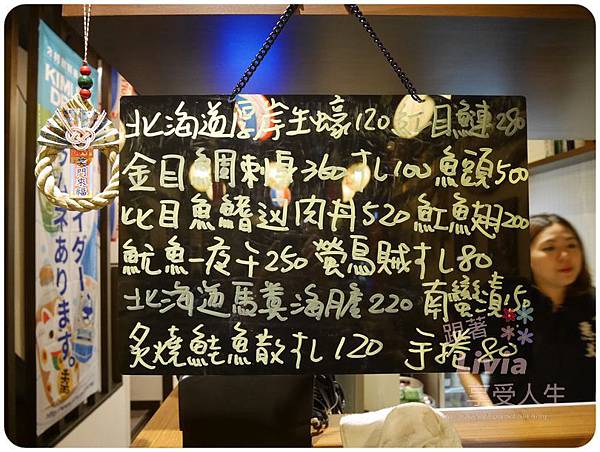 北海道厚岸生蠔120 紅目鰱280
金目鯛刺身360 丸100 魚頭500
比目魚鰭邊肉丼520 魟魚翅200
魷魚一夜干250 螢烏賊丸80
北海道馬糞海膽220 南蠻漬150
炙燒鮭魚散丸120 手捲80
跟著
Livia
享受人生
KIM
ムネあります。
イダー、